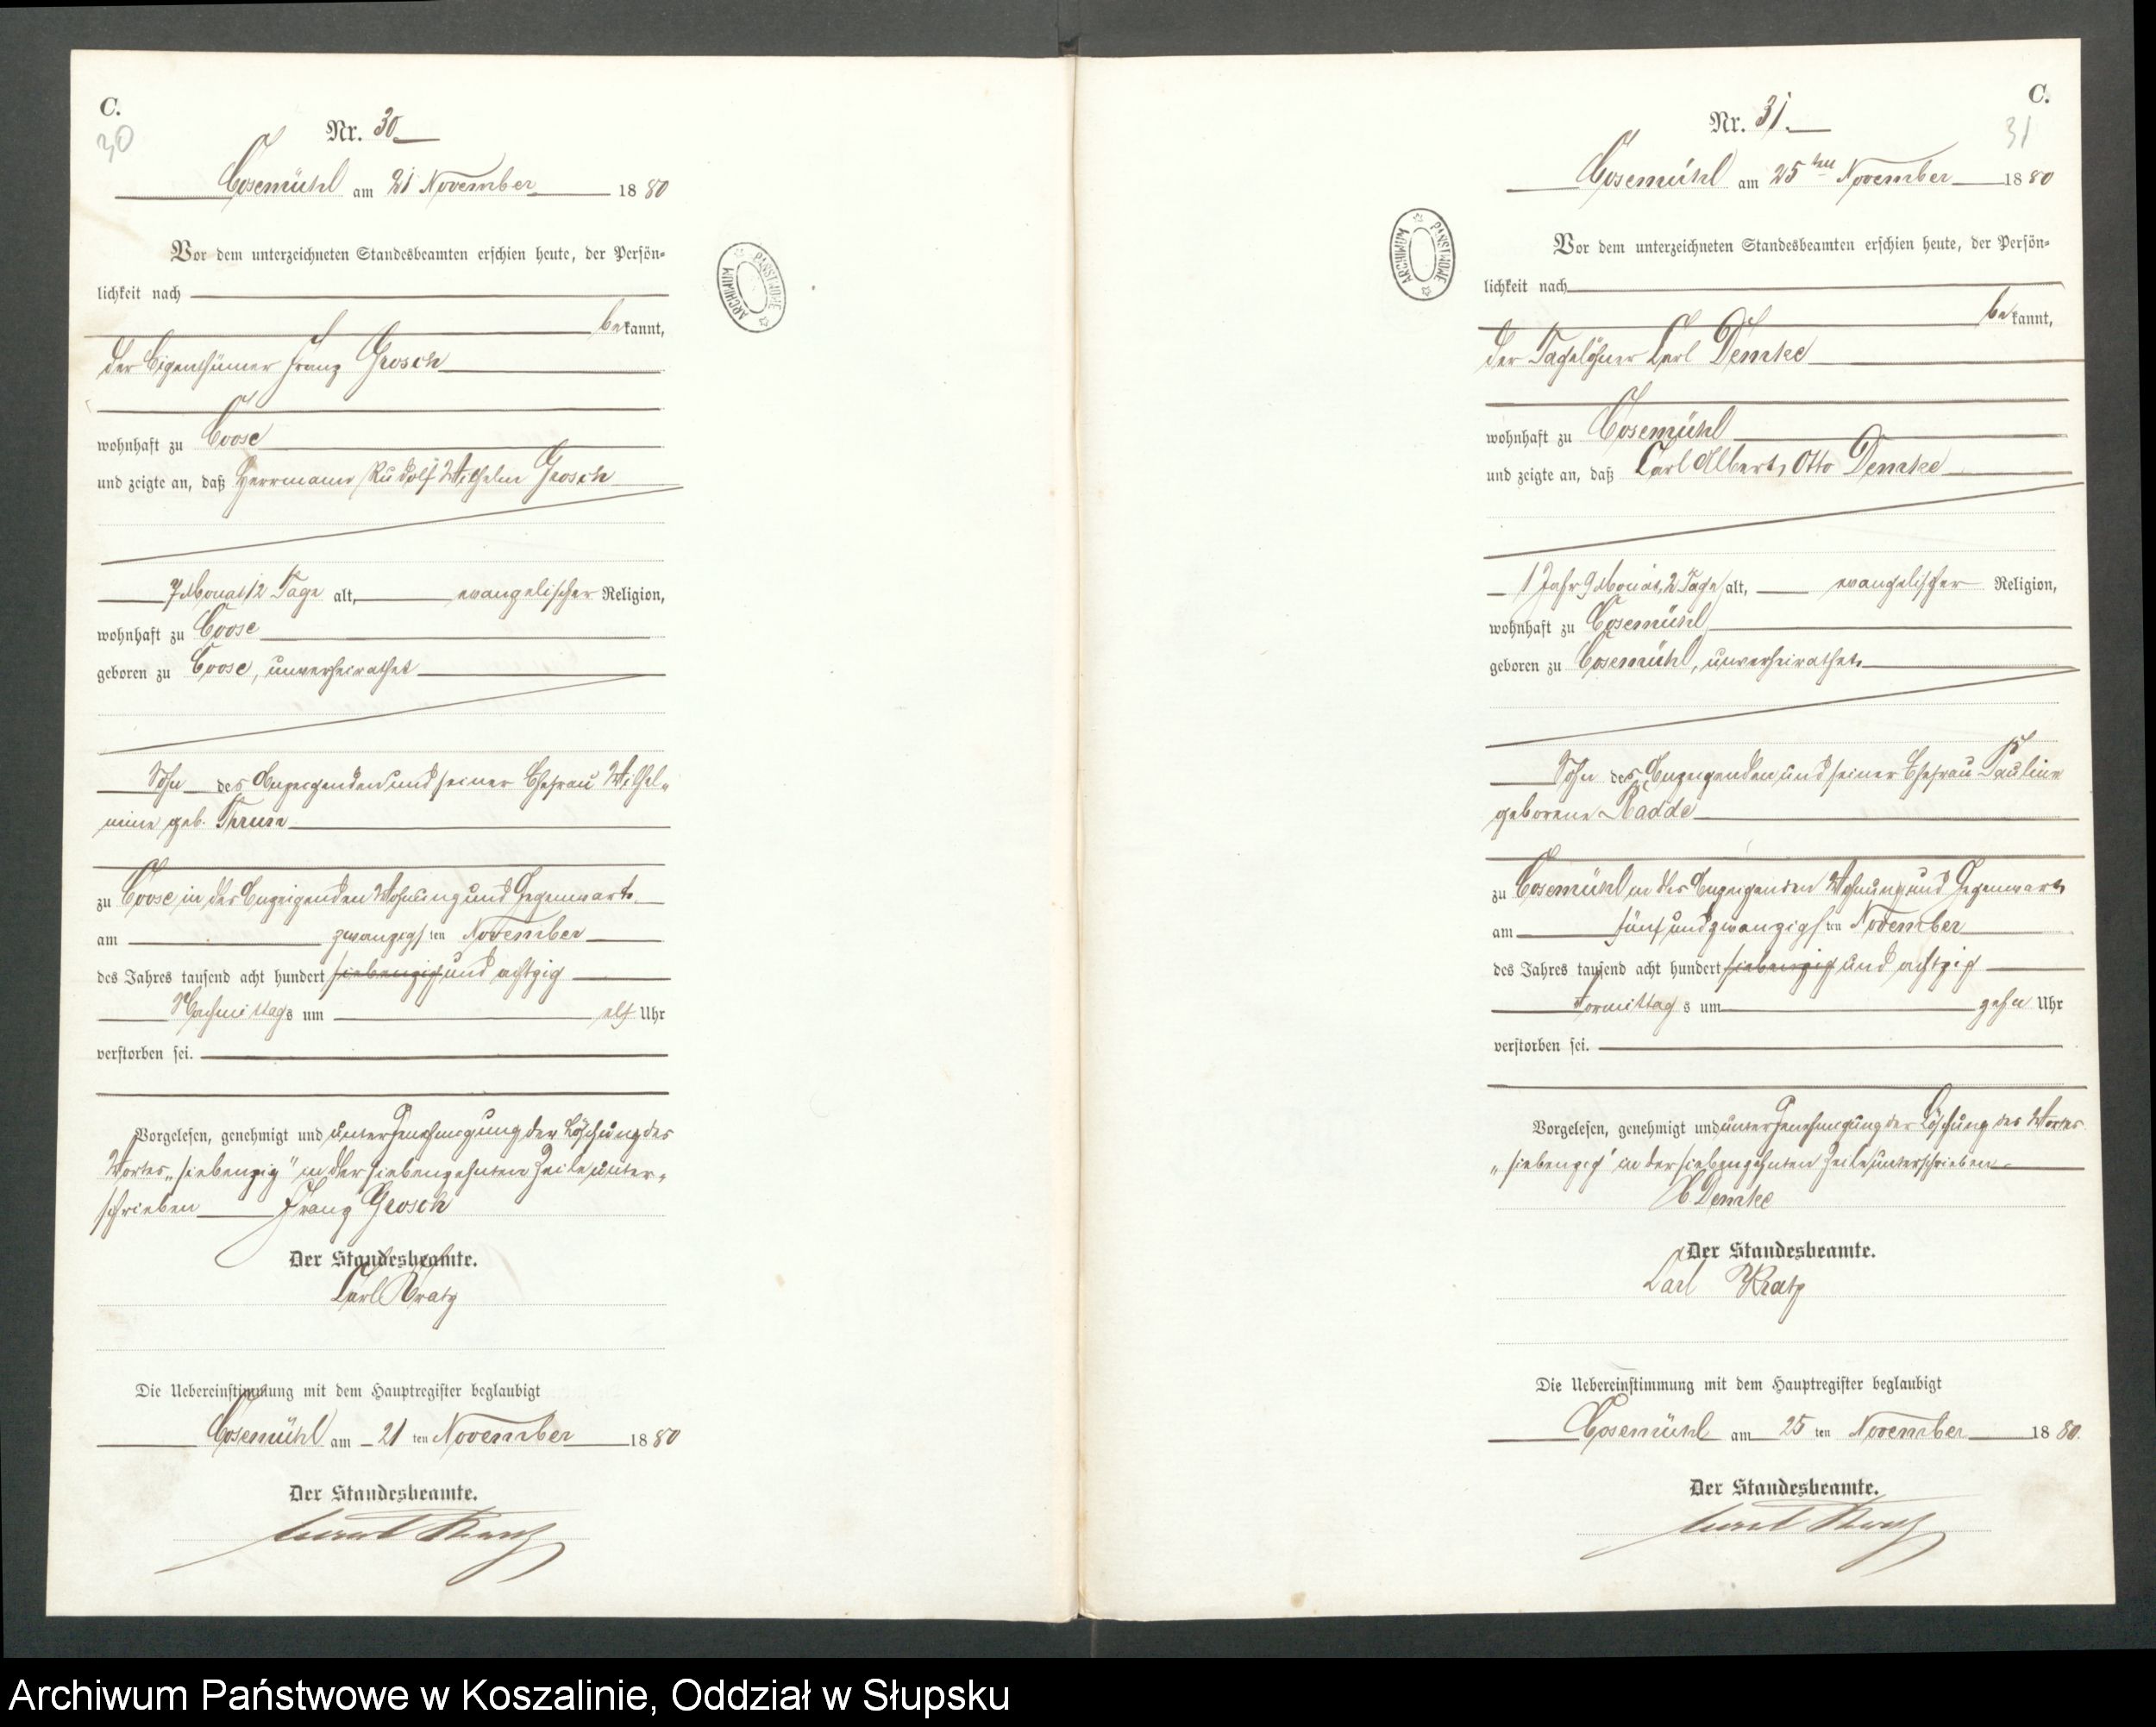 C.
30
Nr. 30
Cosemühl am 21 November 1880
Vor dem unterzeichneten Standesbeamten erschien heute, der Persön-
lichkeit nach
bekannt,
der Eigenthümer Franz Grosch
wohnhaft zu Coose
und zeigte an, daß Herrmann Rudolf Wilhelm Grosch
7 Monat 12 Tage alt, evangelischer Religion,
wohnhaft zu Coose
geboren zu Coose, unverheirathet
Sohn des Anzeigenden und seiner Ehefrau Wilhel-
mine geb.
zu Coose in des Anzeigenden Wohnung und Gegenwart
am zwanzigsten November
des Jahres tausend acht hundert siebenzig und achtzig
Nachmittags um elf Uhr
verstorben sei.
Vorgelesen, genehmigt und unter Genehmigung der Löschung des
Wortes „siebenzig" in der siebenzehnten Zeile unter-
schrieben Franz Grosch
Der Standesbeamte.
Carl Kratz
Die Uebereinstimmung mit dem Hauptregister beglaubigt
Cosemühl am 21ten November 1880
Der Standesbeamte.
Carl Kratz
ARCHIWUM PAŃSTWOWE
C.
31
Nr. 31.
Cosemühl am 25ten November 1880
Vor dem unterzeichneten Standesbeamten erschien heute, der Persön-
lichkeit nach
bekannt,
der Tagelöhner Carl Demske
wohnhaft zu Cosemühl
und zeigte an, daß Carl Albert, Otto Demske
1 Jahr 9 Monat, 2 Tage alt, evangelischer Religion,
wohnhaft zu Cosemühl
geboren zu Cosemühl, unverheirathet
Sohn des Anzeigenden und seiner Ehefrau Pauline
geborene Radde
zu Cosemühl in des Anzeigenden Wohnung und Gegenwart
am fünf und zwanzigsten November
des Jahres tausend acht hundert siebenzig und achtzig
Vormittags um zehn Uhr
verstorben sei.
Vorgelesen, genehmigt und unter Genehmigung der Löschung des Wortes
„siebenzig" in der siebenzehnten Zeile unterschrieben
C Demske
Der Standesbeamte.
Carl Kratz
Die Uebereinstimmung mit dem Hauptregister beglaubigt
Cosemühl am 25ten November 1880.
Der Standesbeamte.
Carl Kratz
ARCHIWUM PAŃSTWOWE
Archiwum Państwowe w Koszalinie, Oddział w Słupsku